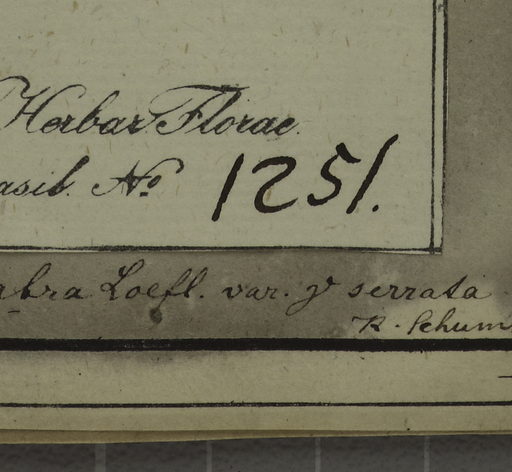 Herbar Florae
asil. No 1251.
abra Loefl. var. γ serrata
K. Schum